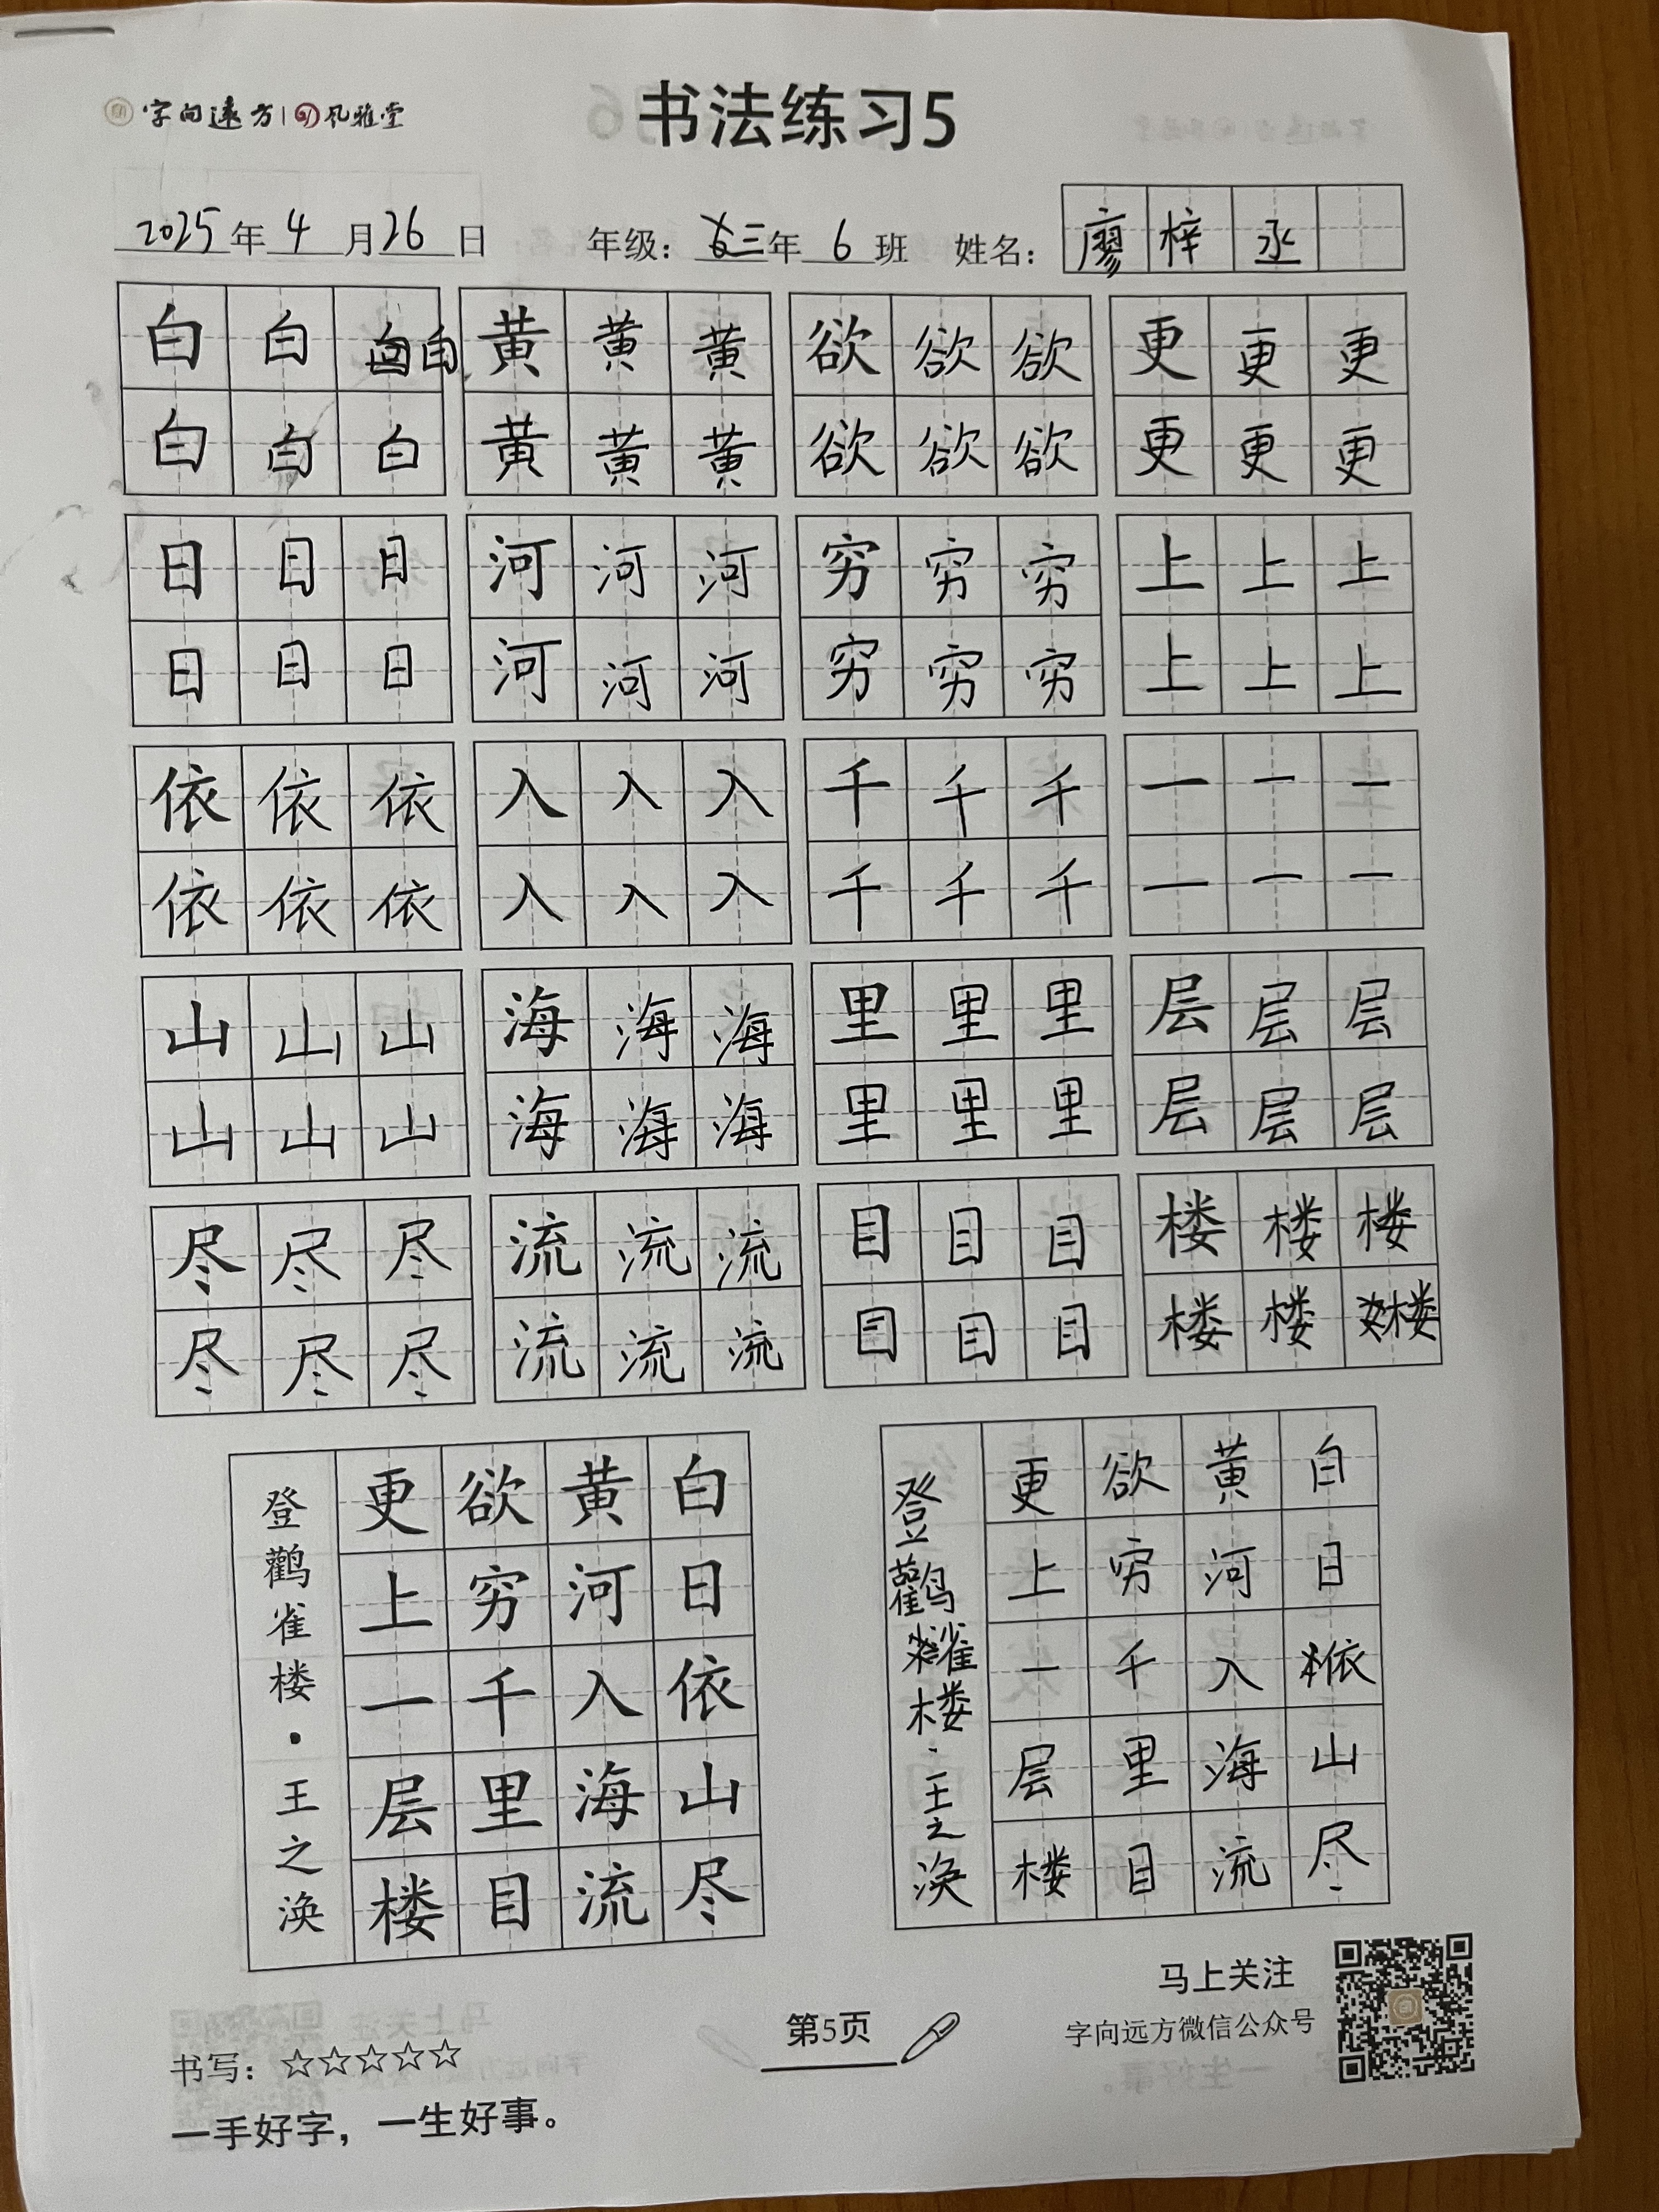 字向远方 | 风雅堂
书法练习5
2025年4月26日 年级：三年6班 姓名：廖梓丞
白白白 黄黄黄 欲欲欲 更更更
白白白 黄黄黄 欲欲欲 更更更
日日日 河河河 穷穷穷 上上上
日日日 河河河 穷穷穷 上上上
依依依 入入入 千千千 一一一
依依依 入入入 千千千 一一一
山山山 海海海 里里里 层层层
山山山 海海海 里里里 层层层
尽尽尽 流流流 目目目 楼楼楼
尽尽尽 流流流 目目目 楼楼楼
白日依山尽
黄河入海流
欲穷千里目
更上一层楼
登鹳雀楼·王之涣
白日依山尽
黄河入海流
欲穷千里目
更上一层楼
登鹳雀楼·王之涣
书写：☆☆☆☆☆
一手好字，一生好事。
第5页
马上关注
字向远方微信公众号